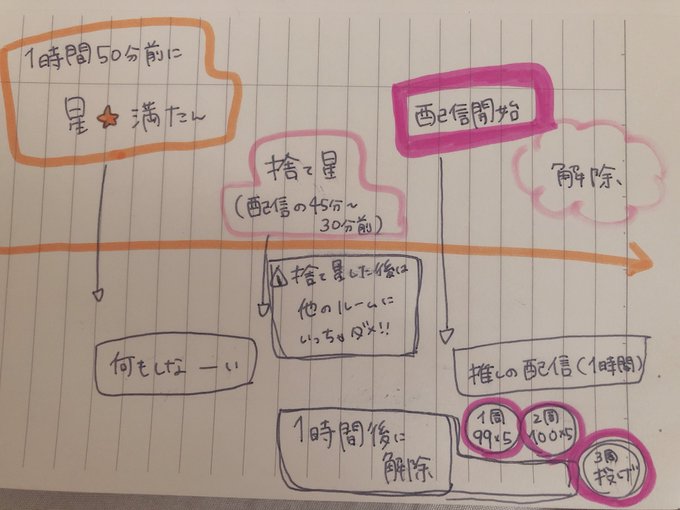 1時間50分前に
星★満たん
捨て星
(配信の45分〜
30分前)
配信開始
解除、
⚠捨て星した後は
他のルームに
いっちゃダメ!!
何もしなーい
推しの配信(1時間)
1時間後に
解除
1周
99×5
2周
100×5
3周
投げ